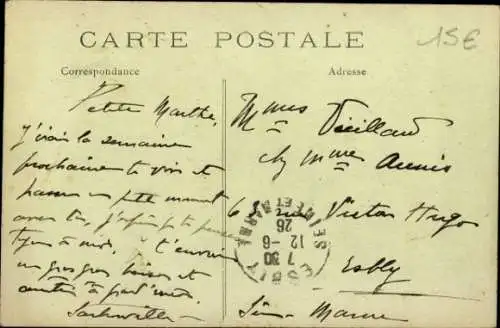 CARTE POSTALE
15€
Correspondance
Adresse
Petite Marthe,
J'irai la semaine
prochaine te voir et
passer un petit moment
avec toi, j'espère que tu penses
à moi. t'envoie
un gros gros baiser et
Mmes Vieillard
chez Mme
68 rue Victor Hugo
Esbly
Seine Marne
ESBLY
7 30
12-6
26
SEINE ET MARNE